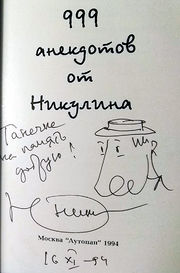 999
анекдотов
от
Никулина
Танечке
на память
добрую!
Москва "Аутопан" 1994
16 XI -94